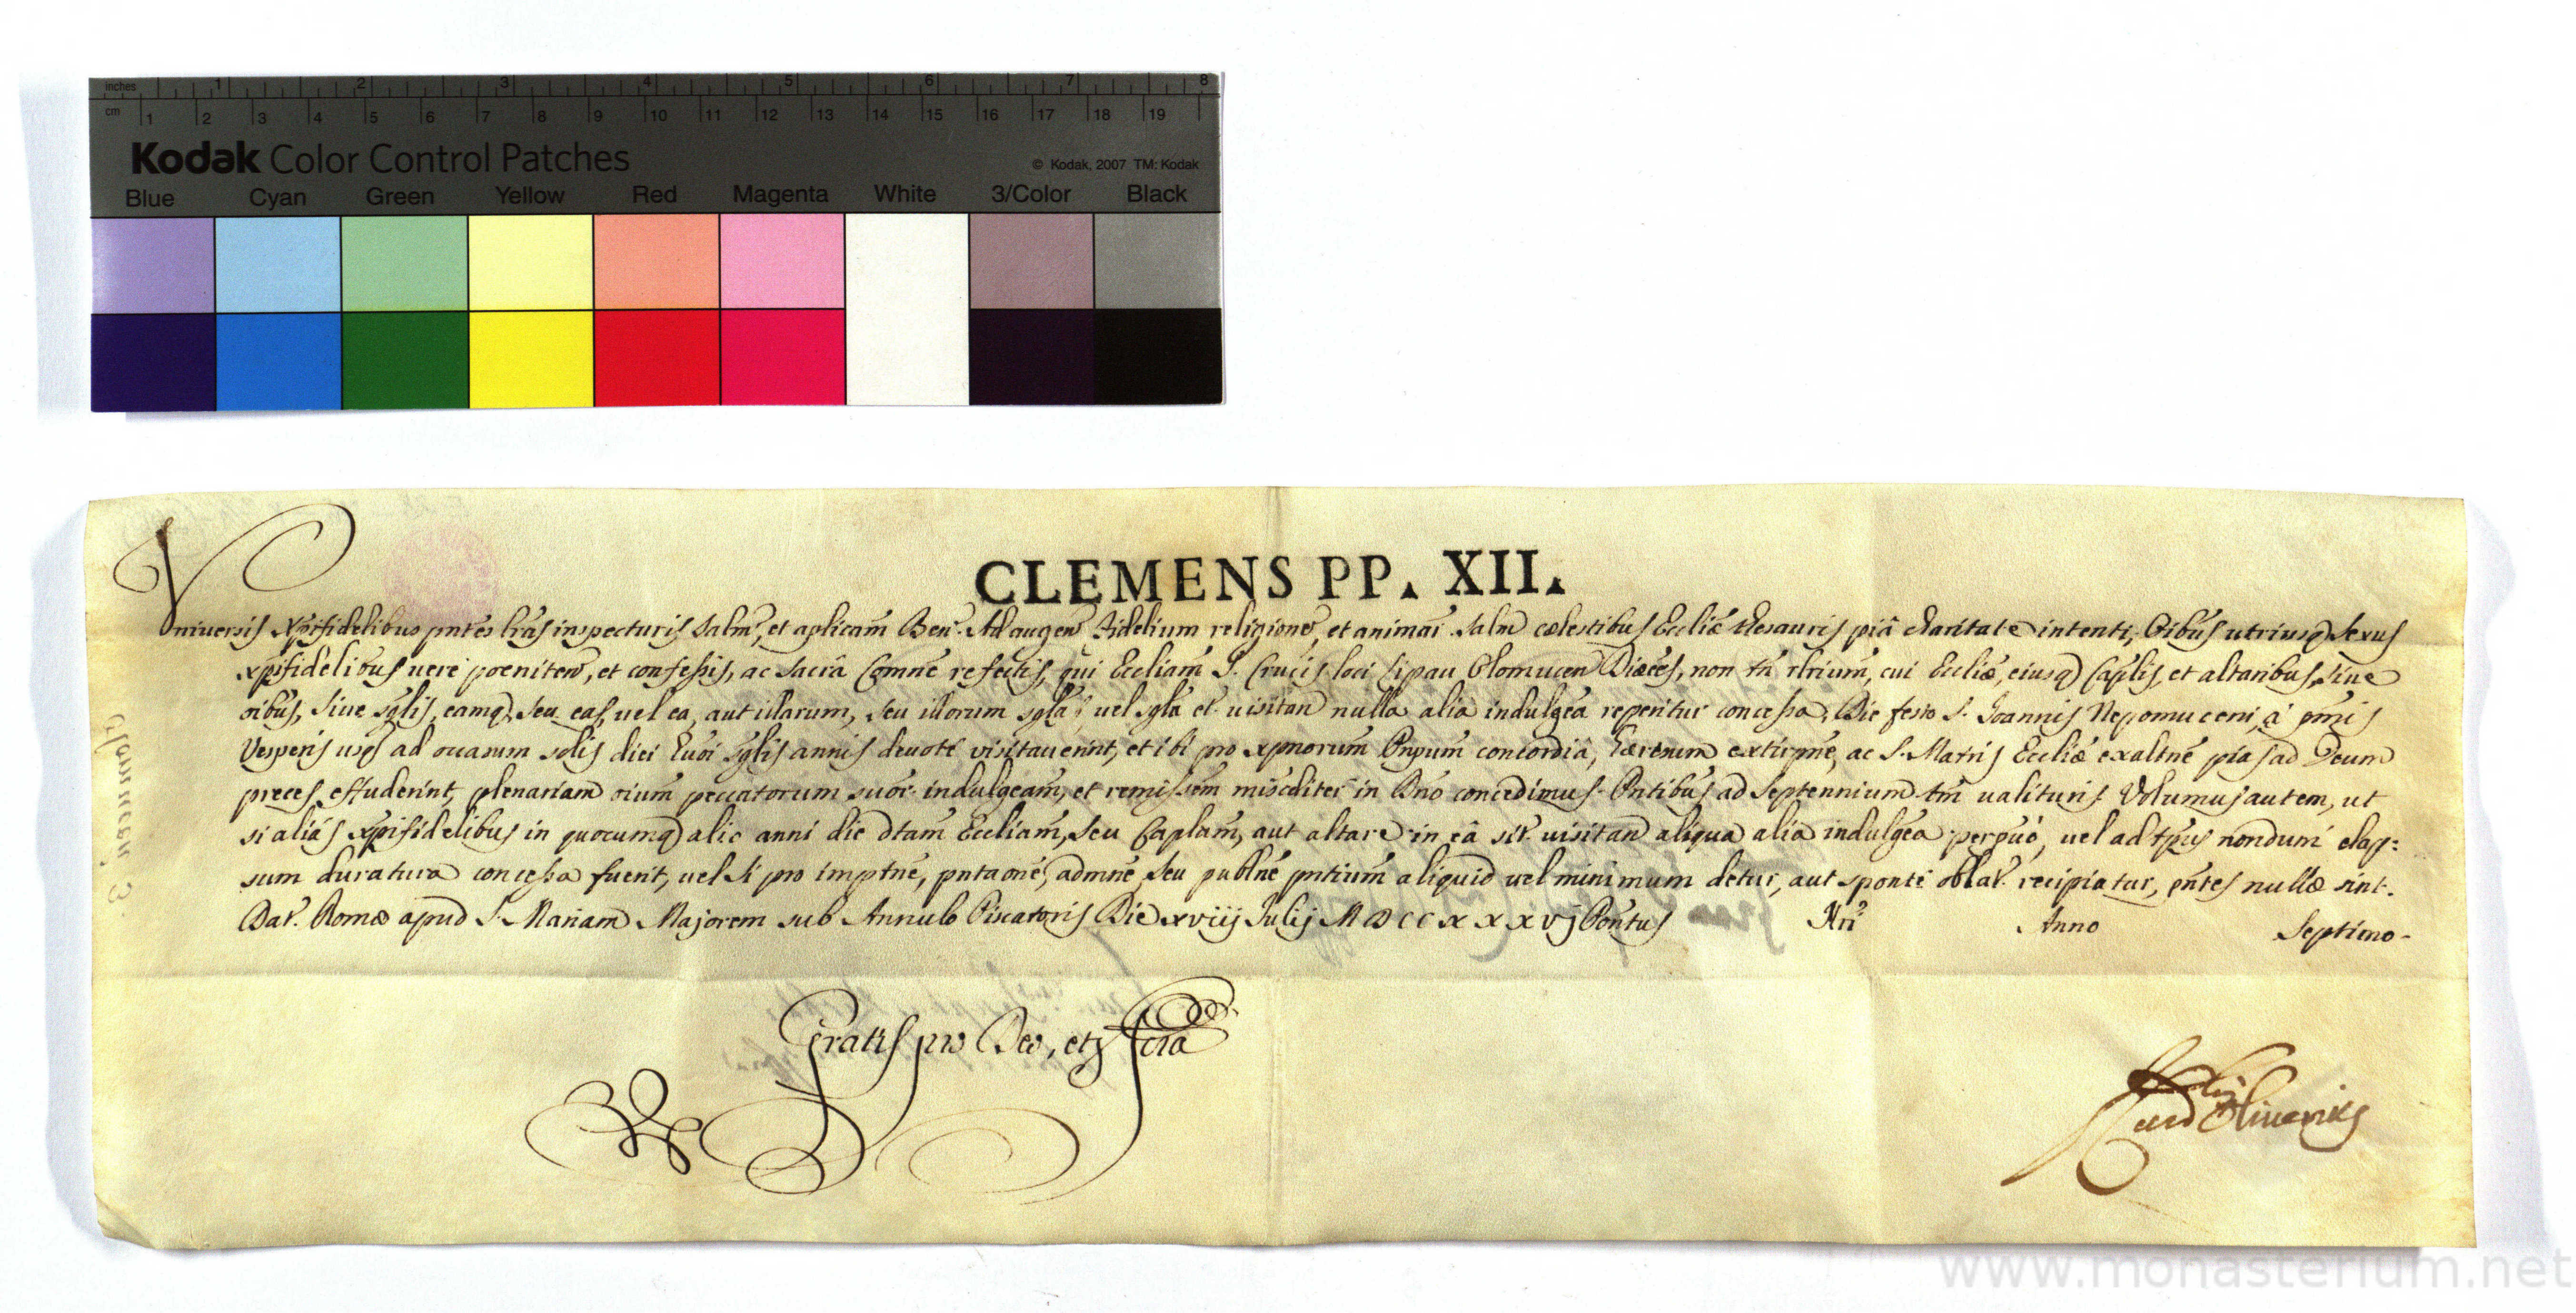 inches 1 2 3 4 5 6 7 8
cm 1 2 3 4 5 6 7 8 9 10 11 12 13 14 15 16 17 18 19
Kodak Color Control Patches
© Kodak, 2007 TM: Kodak
Blue Cyan Green Yellow Red Magenta White 3/Color Black
CLEMENS PP. XII.
Vniversis Xp̄ifidelibus pn̄tes lr̄as inspecturis Salm̄, et aplicam̄ Ben. Ad augen Fidelium religionē, et animar̄ Salm̄ cœlestibus Ecclīæ thesauris piâ charitate intenti, Oībus utriusq Sexus
xp̄ifidelibus uere pœniten, et confessis, ac Sacrâ Com̄ne refectis, qui Eccliam̄ S. Crucis loci Lipau Olomucen Diœces, non tn̄ rlrium̄, cui Ecclīæ, eiusq Cap̄lis, et altaribus, siue
oībus, siue sḡlis, eamq, seu eas, uel ea, aut illarum, seu illorum sḡlas, uel sḡla et uisitan nulla alia indulgēa reperitur concessa, Die festo S. Joannis Nepomuceni, à pm̄is
Vesperis usq ad occasum solis diei hūoi sḡlis annis deuotè visitauerint, et ibi pro xp̄norum̄ Pn̄pum̄ concordiâ, hæresum extirpn̄e, ac S. Matris Ecclīæ exaltn̄e pias ad Deum
preces effuderint, plenariam oīum̄ peccatorum suor. indulgēam̄, et remissēm̄ misēditer in Dn̄o concedimus. Pn̄tibus ad Septennium tm̄ ualituris Volumus autem, ut
si aliàs xp̄ifidelibus in quocumq alio anni die dtam̄ Eccliam̄, seu Cap̄lam̄, aut altare in eâ sit. uisitan aliqua alia indulgēa perpuō, uel ad tp̄us nondum elap=
sum duratura concessa fuerit, uel si pro imptn̄e, pn̄taōne, admn̄e, seu publn̄e pn̄tium̄ aliquid uel minimum detur, aut sponte oblat. recipiatur, pn̄tes nullæ sint.
Dat. Romæ apud S. Mariam Majorem sub Annulo Piscatoris Die xviij Julij MDCCXXXVJ Pontus Nrī Anno Septimo.
Gratis pro Deo, et Scra
Card Oliuerius
Olomucen 3.
www.monasterium.net